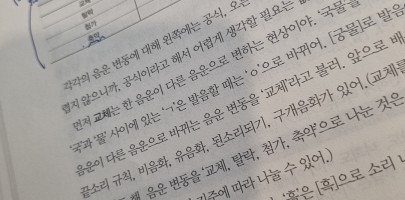 탈락
첨가
축약
각각의 음운 변동에 대해 왼쪽에는 공식, 오른
렵지 않으니까, 공식이라고 해서 어렵게 생각할 필요는
먼저 교체는 한 음운이 다른 음운으로 변하는 현상이야. '국물'을
'국'과 '물' 사이에 있는 'ㄱ'은 발음할 때는 'ㅇ'으로 바뀌어, [궁물]로 발음
음운이 다른 음운으로 바뀌는 음운 변동을 '교체'라고 불러. 앞으로 배
끝소리 규칙, 비음화, 유음화, 된소리되기, 구개음화가 있어. (교체를
해, 음운 변동을 '교체, 탈락, 첨가, 축약'으로 나눈 것은
기준에 따라 나눌 수 있어.)
'흙'은 [흑]으로 소리